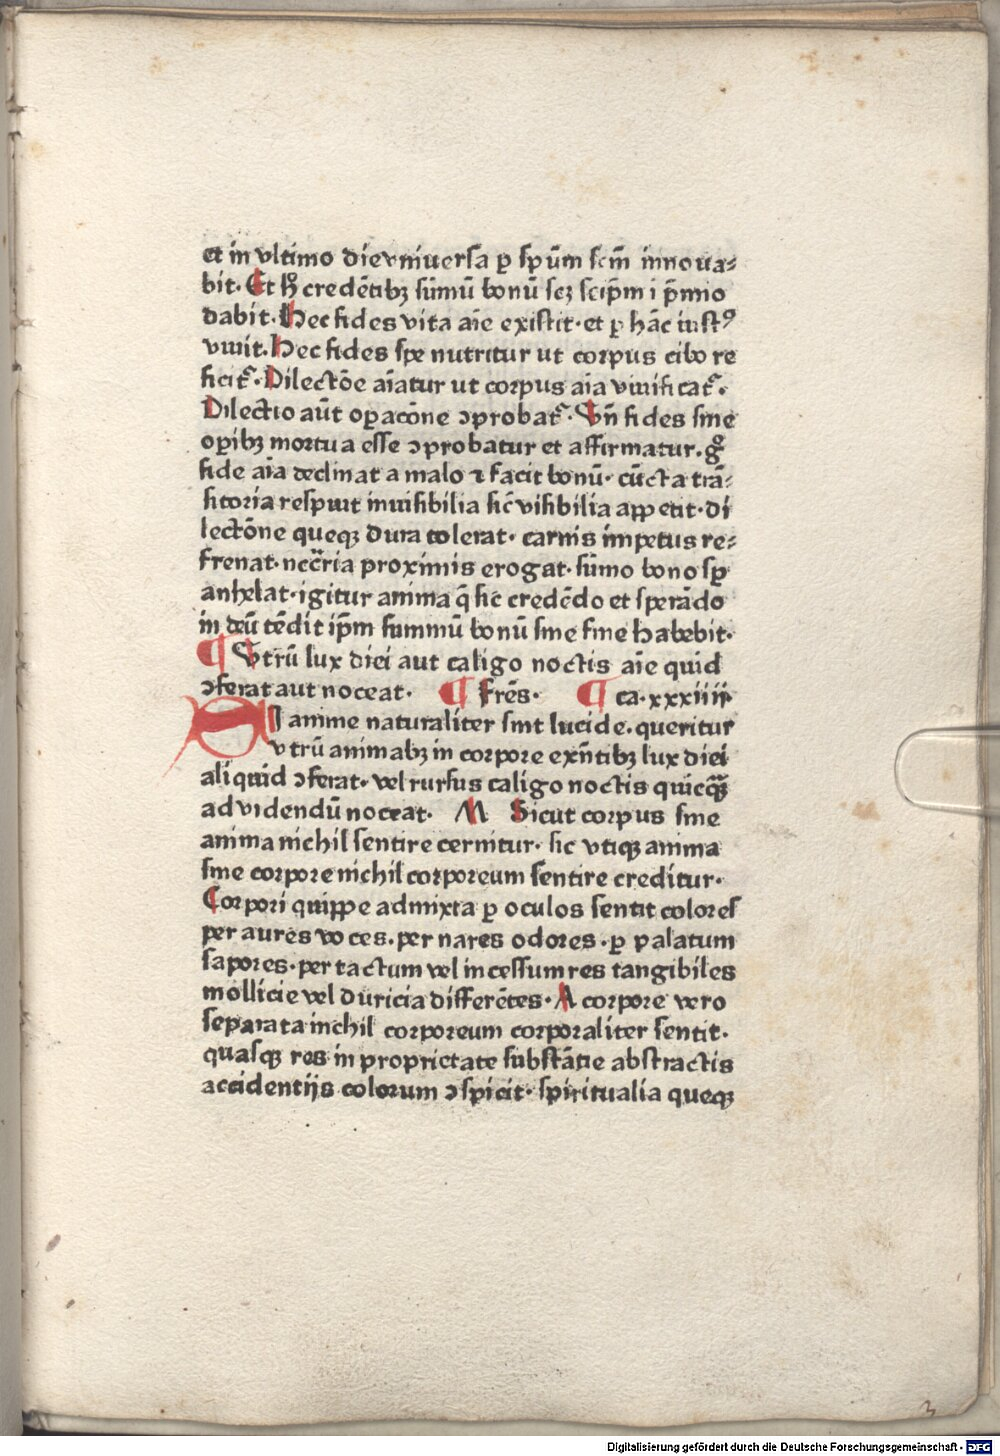 et in vltimo die vniuersa ꝑ spūm scm̄ innoua⸗
bit. Et h̄ credētibꝫ sūmū bonū scꝫ seip̄m i p̄mio
dabit. Hec fides vita aīe existit. et ꝑ hāc iustꝰ
viuit. Hec fides spe nutritur ut corpus cibo re
ficit᷑. Dilectōe aīatur ut corpus aīa viuificat᷑.
Dilectio aūt oꝑacōne ↄprobat᷑. Vn̄ fides sine
oꝑibꝫ mortua esse ↄprobatur et affirmatur. gͦ
fide aīa declinat a malo ⁊ facit bonū. cūcta trā⸗
sitoria respuit inuisibilia sic̄ visibilia appetit. di
lectōne queqꝫ dura tolerat. carnis impetus re⸗
frenat. necc̄ria proximis erogat. sūmo bono sꝑ
anhelat. igitur anima q̄ sic credēdo et sperādo
in deū tēdit ip̄m summū bonū sine fine habebit.
¶ Vtrū lux diei aut caligo noctis aīe quid
ↄferat aut noceat. ¶ Frēs. ¶ ca. xxxiiii
SI anime naturaliter sint lucide. queritur
vtrū animabꝫ in corpore exn̄tibꝫ lux diei
aliquid ↄferat. vel rursus caligo noctis quicqᷓꝫ
ad videndū noceat. M Sicut corpus sine
anima nichil sentire cernitur. sic vtiqꝫ anima
sine corpore nichil corporeum sentire creditur.
Corpori quippe admixta ꝑ oculos sentit colores
per aures voces. per nares odores. ꝑ palatum
sapores. per tactum vel incessum res tangibiles
mollicie vel duricia differētes. A corpore vero
separata nichil corporeum corporaliter sentit.
quasqꝫ res in proprietate substātie abstractis
accidentijs colorum ↄspicit. spiritualia queqꝫ
3
Digitalisierung gefördert durch die Deutsche Forschungsgemeinschaft - DFG